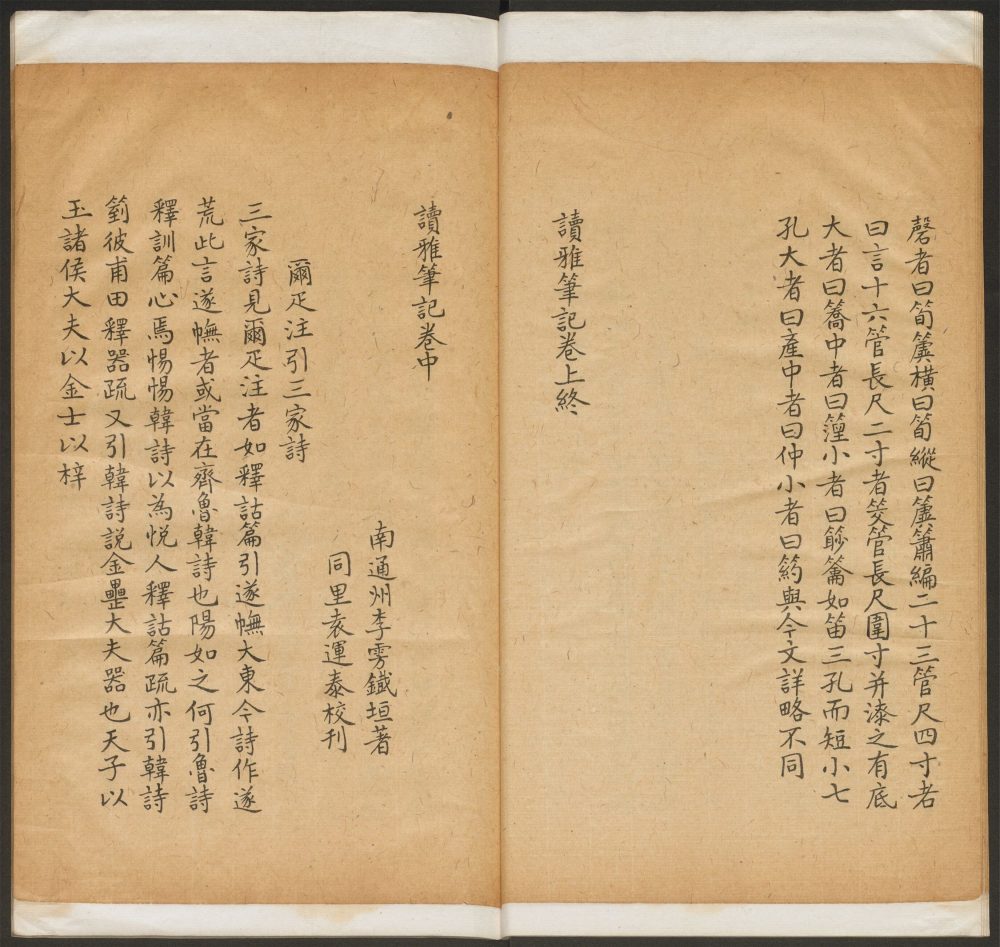 磬者曰筍簴橫曰筍縱曰簴簫編二十三管尺四寸者
曰言十六管長尺二寸者筊管長尺圍寸并漆之有底
大者曰簥中者曰篞小者曰篎籥如笛三孔而短小七
孔大者曰產中者曰仲小者曰箹與今文詳略不同
讀雅筆記卷上終
讀雅筆記卷中
南通州李雱鐵垣著
同里袁運泰校刊
爾疋注引三家詩
三家詩見爾疋注者如釋詁篇引遂幠大東今詩作遂
荒此言遂幠者或當在齊魯韓詩也陽如之何引魯詩
釋訓篇心焉惕惕韓詩以為悅人釋詁篇疏亦引韓詩
箌彼甫田釋器疏又引韓詩説金罍大夫器也天子以
玉諸侯大夫以金士以梓